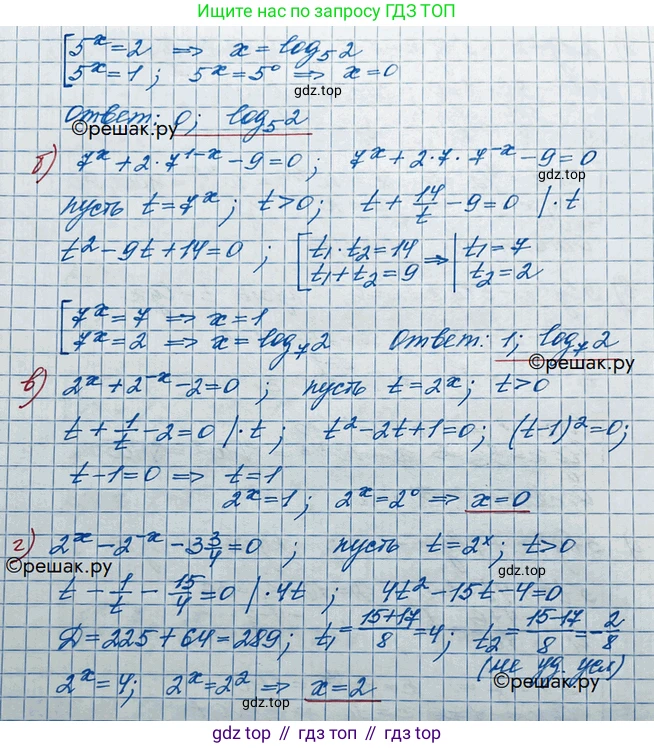 Ищите нас по запросу ГДЗ ТОП
[5^x = 2 ⇒ x = log₅2
[5^x = 1; 5^x = 5⁰ ⇒ x = 0
gdz.top
Ответ: 0; log₅2
©решак.ру
б) 7^x + 2·7^(1-x) - 9 = 0; 7^x + 2·7·7^(-x) - 9 = 0
gdz.top
пусть t = 7^x; t > 0; t + 14/t - 9 = 0 |·t
t² - 9t + 14 = 0; [t₁·t₂ = 14 ⇒ | t₁ = 7
[t₁ + t₂ = 9 | t₂ = 2
[7^x = 7 ⇒ x = 1
[7^x = 2 ⇒ x = log₇2 Ответ: 1; log₇2
©решак.ру
в) 2^x + 2^(-x) - 2 = 0; пусть t = 2^x; t > 0
t + 1/t - 2 = 0 |·t; t² - 2t + 1 = 0; (t-1)² = 0;
t - 1 = 0 ⇒ t = 1
2^x = 1; 2^x = 2⁰ ⇒ x = 0
г) 2^x - 2^(-x) - 3 3/4 = 0; пусть t = 2^x; t > 0
©решак.ру
gdz.top
t - 1/t - 15/4 = 0 |·4t; 4t² - 15t - 4 = 0
Д = 225 + 64 = 289; t₁ = (15+17)/8 = 4; t₂ = (15-17)/8 = -2/8
(не уд. усл)
©решак.ру
2^x = 4; 2^x = 2² ⇒ x = 2
gdz.top
gdz top // gdz.top // gdz.top